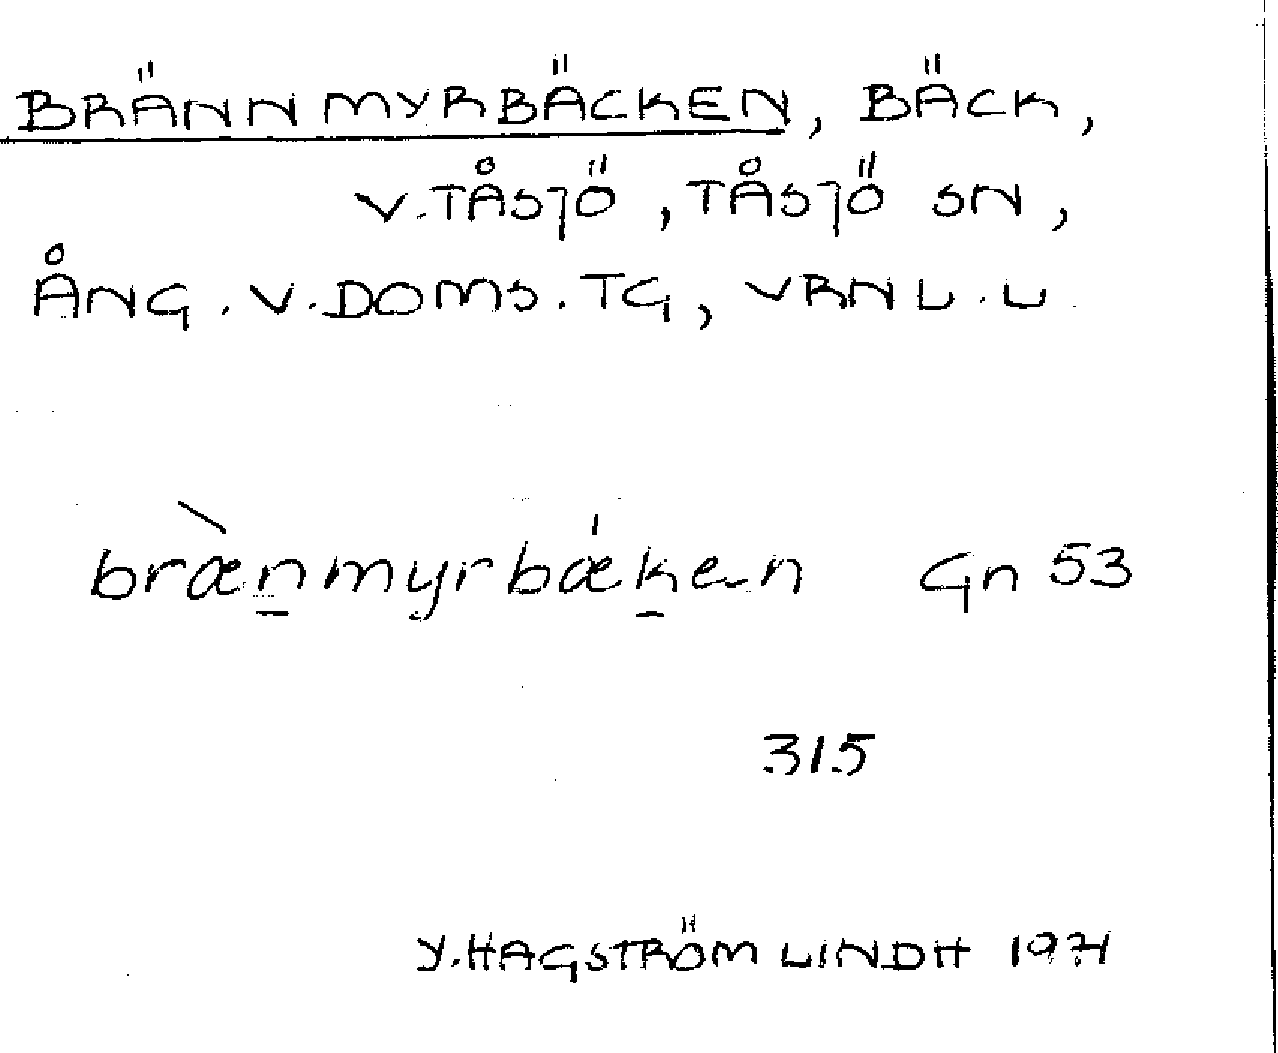 BRÄNNMYRBÄCKEN, BÄCK,
V. TÅSJÖ, TÅSJÖ SN,
ÅNG. V. DOMS. TG, VRNL. L
brænmyrbæken Gn 53
315
Y. HAGSTRÖM LINDH 1971